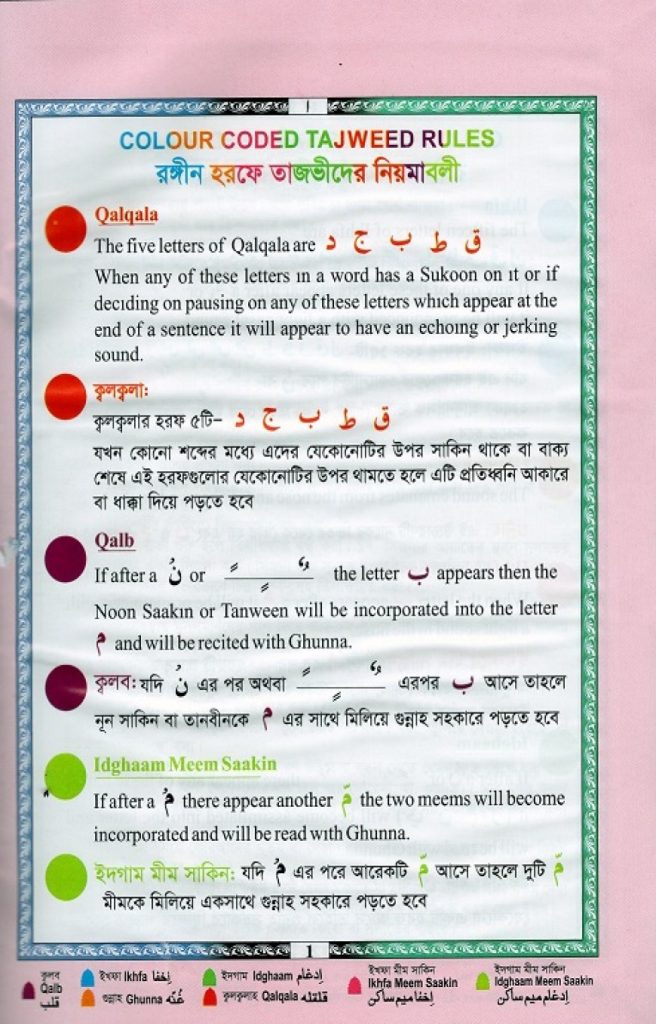 ١
COLOUR CODED TAJWEED RULES
রঙ্গীন হরফে তাজভীদের নিয়মাবলী
Qalqala
The five letters of Qalqala are ق ط ب ج د
When any of these letters in a word has a Sukoon on it or if
deciding on pausing on any of these letters which appear at the
end of a sentence it will appear to have an echoing or jerking
sound.
ক্বলক্বলা:
ক্বলক্বলার হরফ ৫টি- ق ط ب ج د
যখন কোনো শব্দের মধ্যে এদের যেকোনোটির উপর সাকিন থাকে বা বাক্য
শেষে এই হরফগুলোর যেকোনোটির উপর থামতে হলে এটি প্রতিধ্বনি আকারে
বা ধাক্কা দিয়ে পড়তে হবে
Qalb
If after a نْ or ــًــٍــٌ the letter ب appears then the
Noon Saakin or Tanween will be incorporated into the letter
م and will be recited with Ghunna.
ক্বলব: যদি نْ এর পর অথবা ــًــٍــٌ এরপর ب আসে তাহলে
নূন সাকিন বা তানবীনকে م এর সাথে মিলিয়ে গুন্নাহ সহকারে পড়তে হবে
Idghaam Meem Saakin
If after a مْ there appear another مّ the two meems will become
incorporated and will be read with Ghunna.
ইদগাম মীম সাকিন: যদি مْ এর পরে আরেকটি مّ আসে তাহলে দুটি مّ
মীমকে মিলিয়ে একসাথে গুন্নাহ সহকারে পড়তে হবে
1
ক্বলব Qalb قلب
ইখফা Ikhfa إخفا
গুন্নাহ Ghunna غُنّه
ইদগাম Idghaam إدغام
ক্বলক্বলাহ Qalqala قلقله
ইখফা মীম সাকিন Ikhfa Meem Saakin إخفا ميم ساكن
ইদগাম মীম সাকিন Idghaam Meem Saakin إدغام ميم ساكن